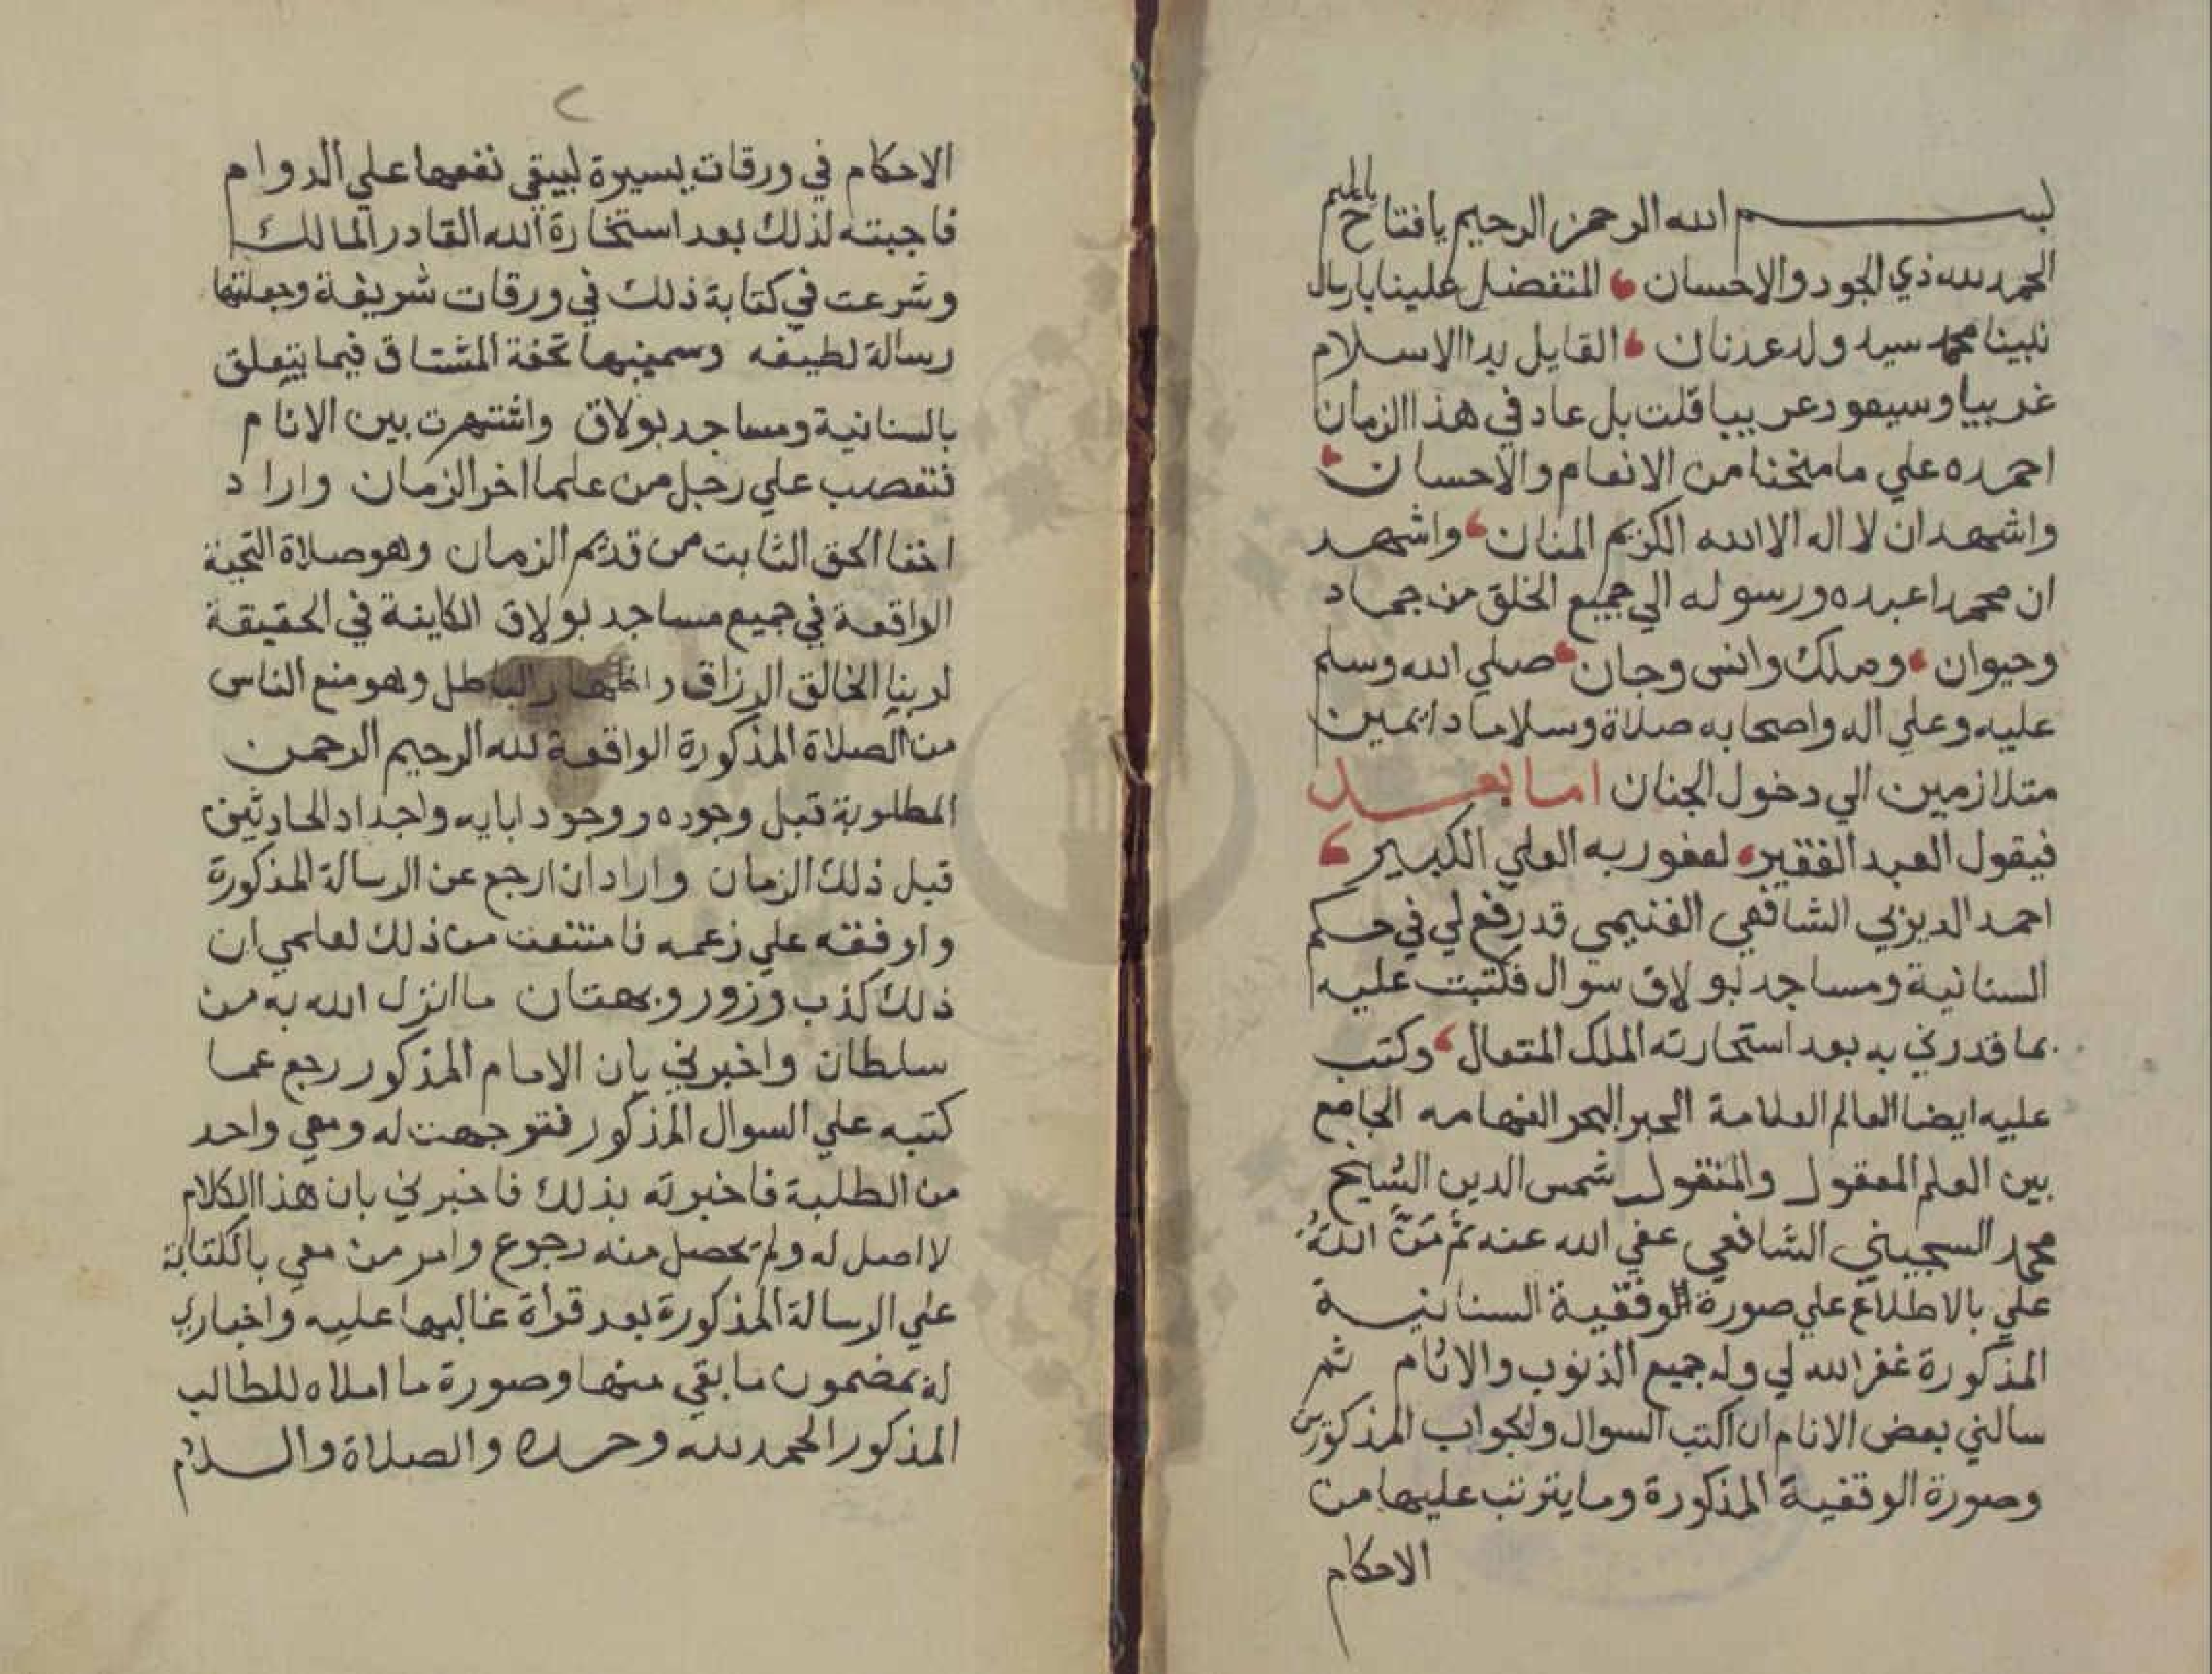 بسم الله الرحمن الرحيم يافتاح ياعليم
الحمد لله ذي الجود والاحسان المتفضل علينا بارسال
نبينا محمد سيد ولد عدنان القايل بدا الاسلام
غريبا وسيعود غريبا قلت بل عاد في هذا الزمان
احمده علي ما منحنا من الانعام والاحسان
واشهد ان لا اله الا الله الكريم المنان واشهد
ان محمدا عبده ورسوله الي جميع الخلق من جماد
وحيوان وملك وانس وجان صلي الله وسلم
عليه وعلي اله واصحابه صلاة وسلاما دايمين
متلازمين الي دخول الجنان اما بعد
فيقول العبد الفقير لعفو ربه العلي الكبير
احمد الديربي الشافعي الغنيمي قد رفع لي في حكم
السنانية ومساجد بولاق سوال فكتبت عليه
بما قدرني به بعد استخارته الملك المتعال وكتب
عليه ايضا العالم العلامة الحبر البحر الفهامه الجامع
بين العلم المعقول والمنقول شمس الدين الشيخ
محمد السجيني الشافعي عفي الله عنه ثم مَنَّ اللهُ
علي بالاطلاع علي صورة الوقفية السنانية
المذكورة غفر الله لي وله جميع الذنوب والاثام ثم
سالني بعض الانام ان اكتب السوال والجواب المذكورين
وصورة الوقفية المذكورة وما يترتب عليها من
الاحكام
٢
الاحكام في ورقات يسيرة ليبقي نفعها علي الدوام
فاجبته لذلك بعد استخارة الله القادر المالك
وشرعت في كتابة ذلك في ورقات شريفة وجعلتها
رسالة لطيفه وسميتها تحفة المشتاق فيما يتعلق
بالسنانية ومساجد بولاق واشتهرت بين الانام
فتعصب علي رجل من علما اخر الزمان واراد
اخفا الحق الثابت من قديم الزمان وهو صلاة التحية
الواقعة في جميع مساجد بولاق الكاينة في الحقيقة
لربنا الخالق الرزاق واظهار الباطل وهو منع الناس
من الصلاة المذكورة الواقعة لله الرحيم الرحمن
المطلوبة قبل وجوده ووجود ابايه واجداد الحادثين
قبل ذلك الزمان واراد ان ارجع عن الرسالة المذكورة
واوفقه علي زعمه فامتنعت من ذلك لعلمي ان
ذلك كذب وزور وبهتان ما انزل الله به من
سلطان واخبرني بان الامام المذكور رجع عما
كتبه علي السوال المذكور فتوجهت له ومعي واحد
من الطلبة فاخبرته بذلك فاخبرني بان هذا الكلام
لا اصل له ولم يحصل منه رجوع وامر من معي بالكتابة
علي الرسالة المذكورة بعد قرأة غالبها عليه واخباري
له بمضمون ما بقي منها وصورة ما املاه للطالب
المذكور الحمد لله وحده والصلاة والسلام